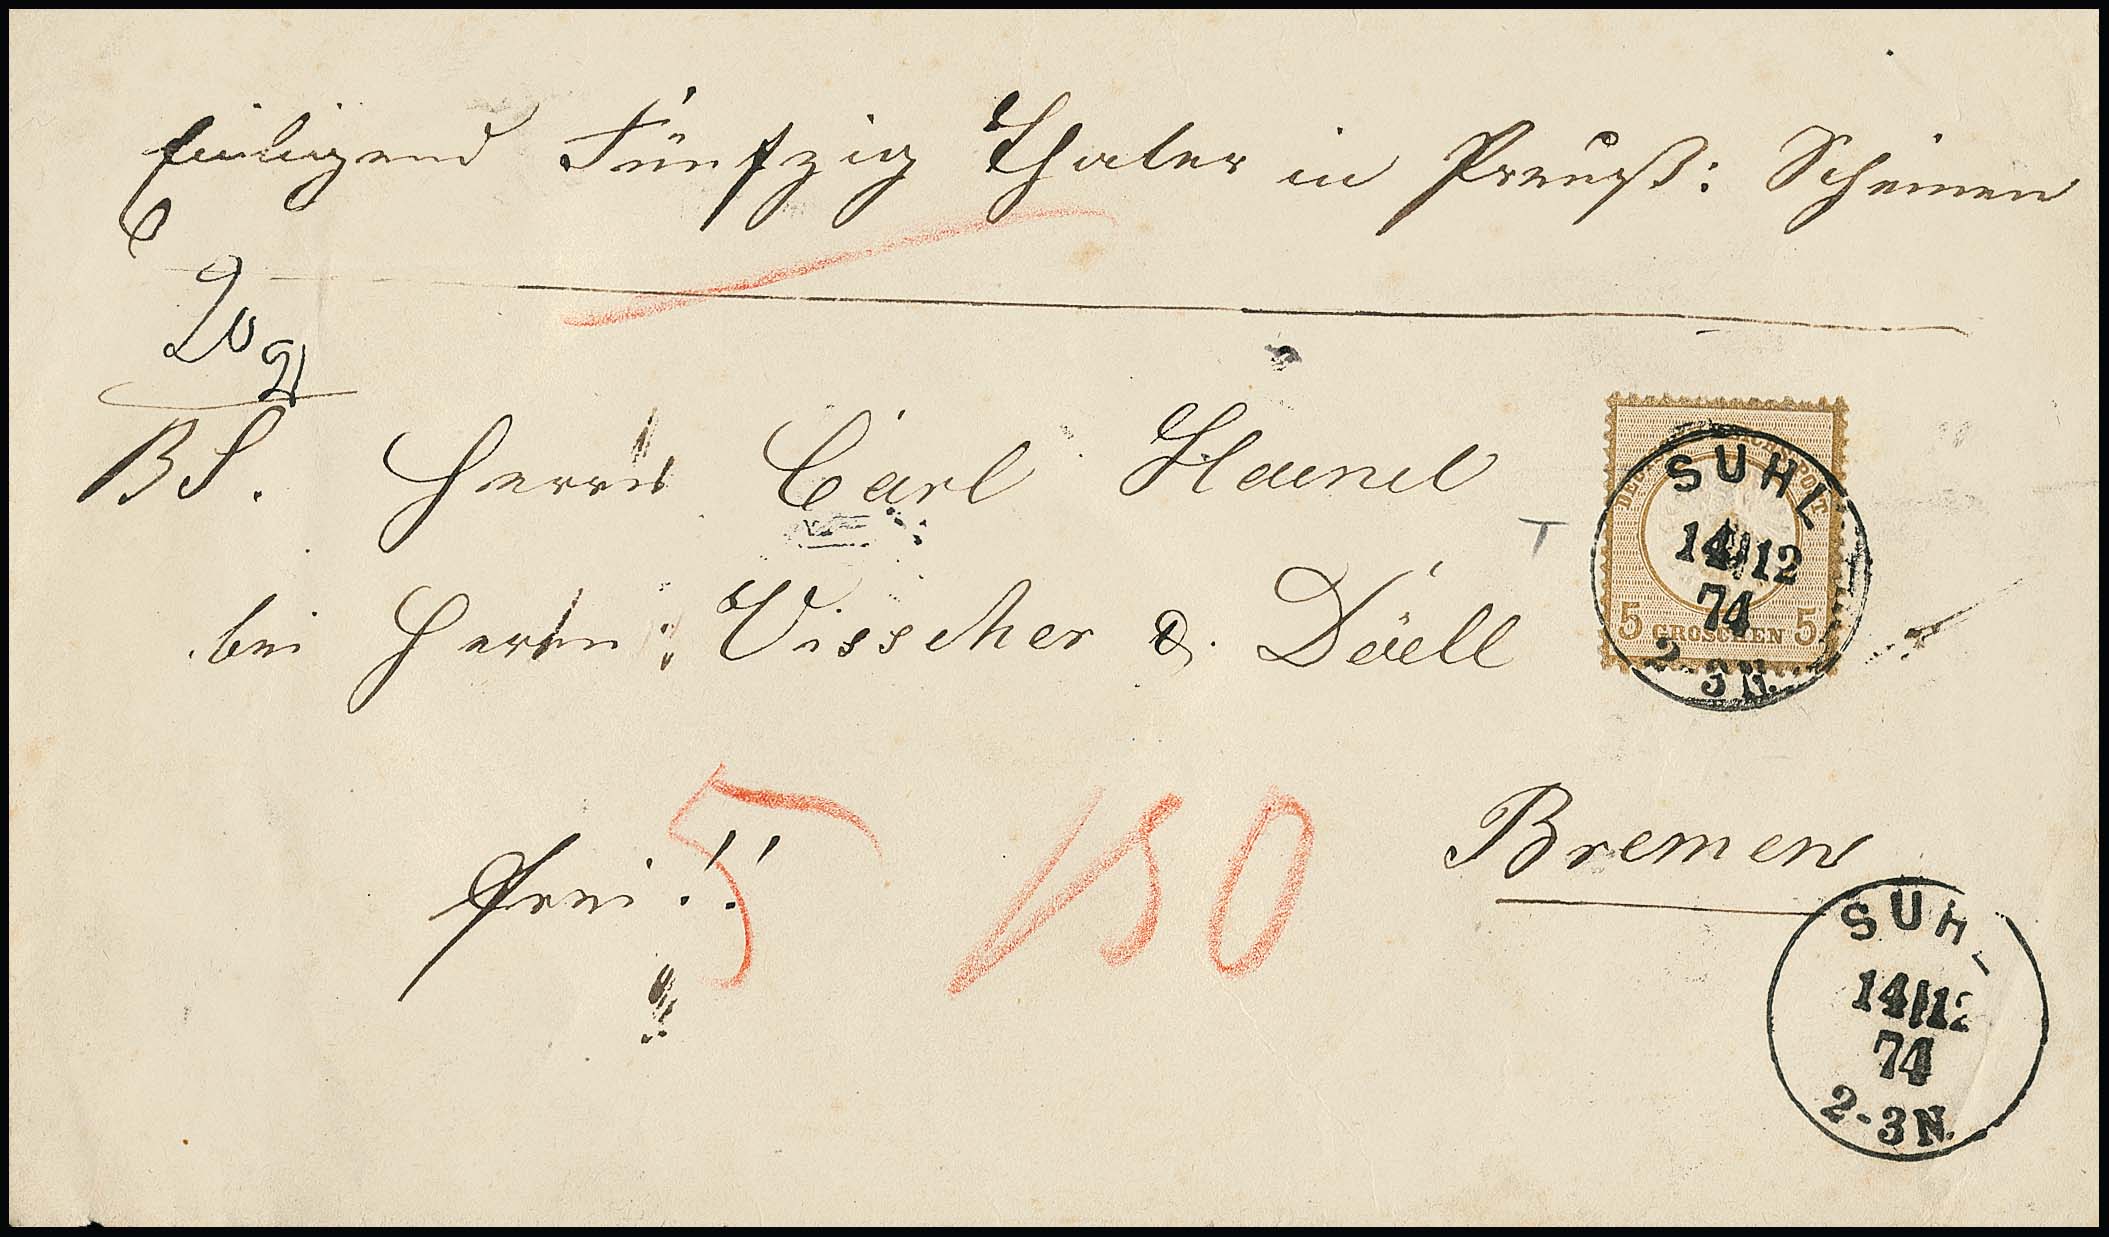 Einliegend Fünfzig Thaler in Preuß: Scheinen
BS. Herrn Carl Haenel
bei Herrn: Visscher & Döell
DEUTSCHE REICHSPOST
5 GROSCHEN 5
SUHL
14/12
74
2-3N.
frei!!
5 150
Bremen
SUHL
14/12
74
2-3N.